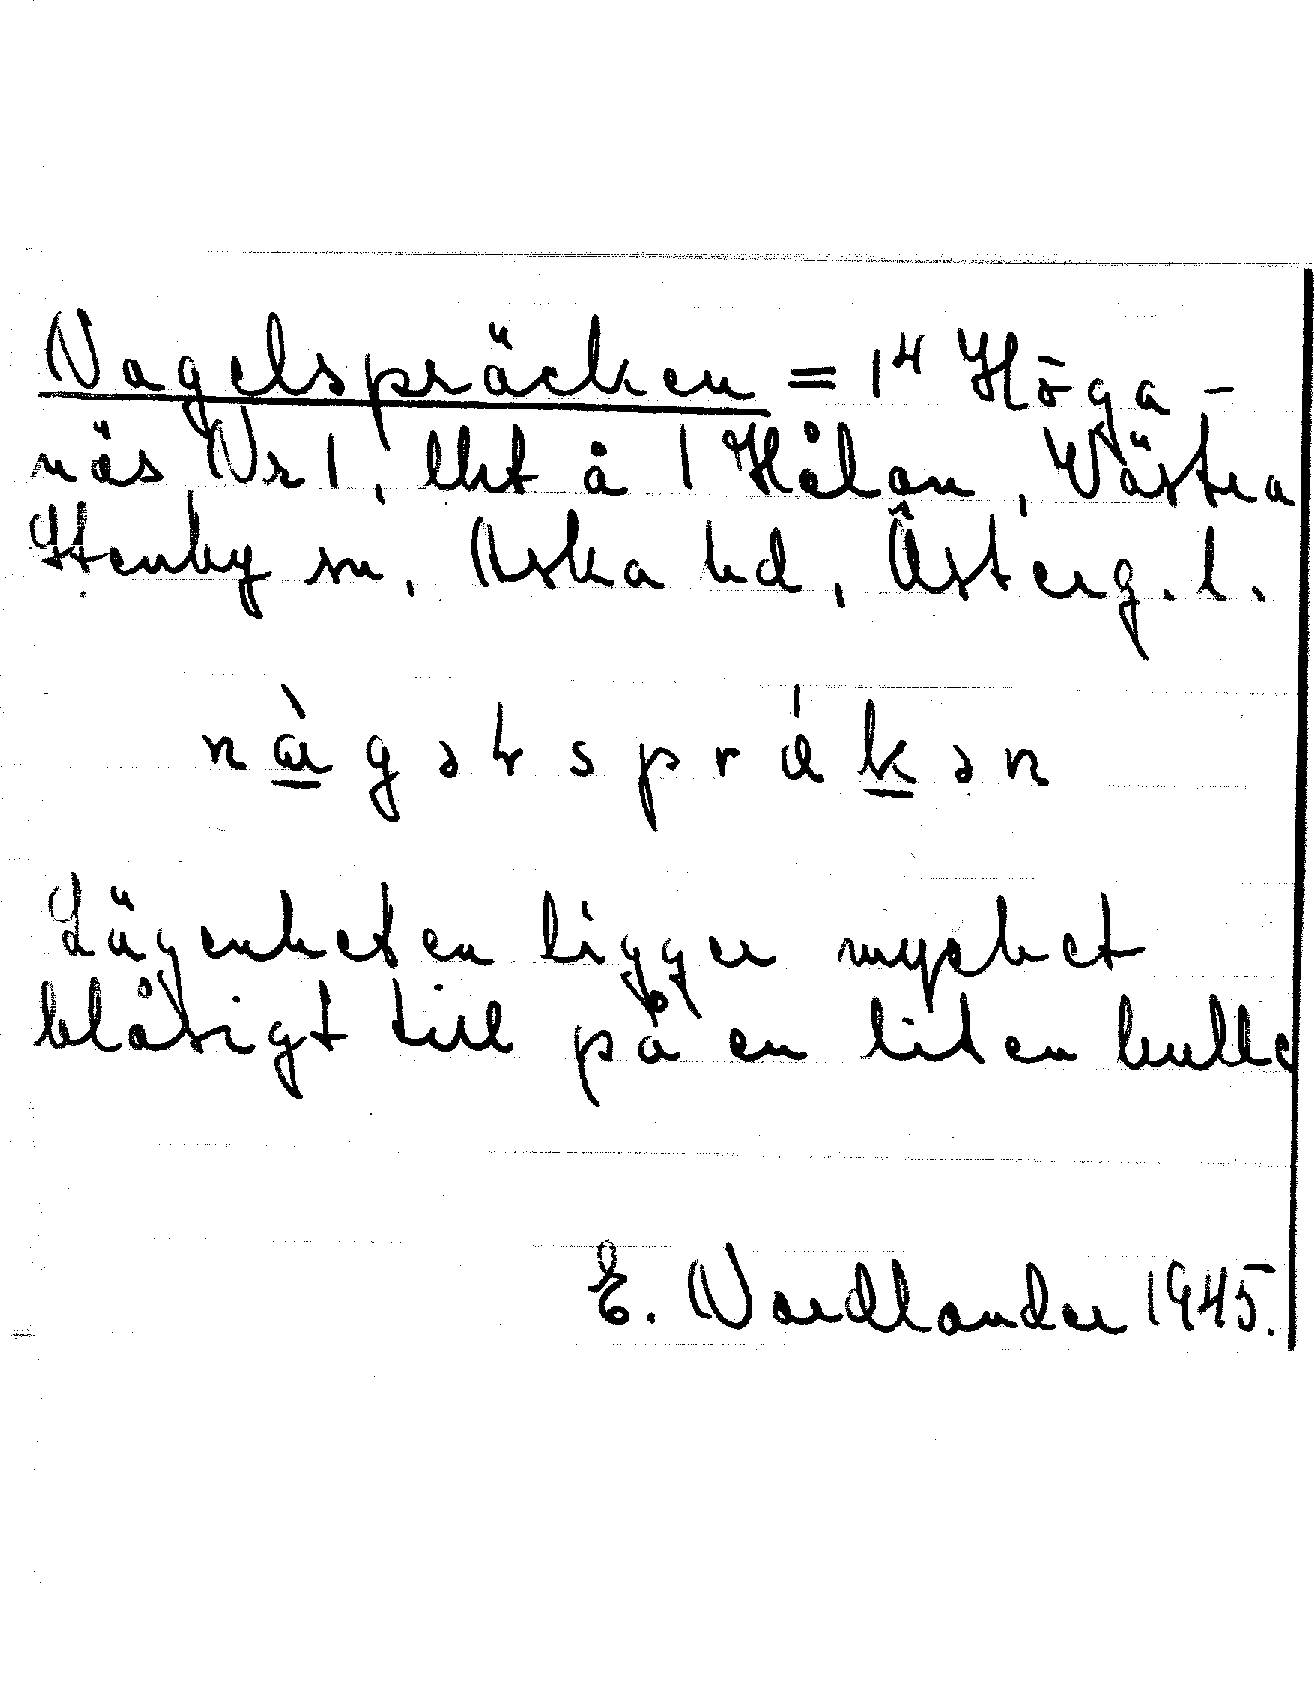 Nagelspräcken = 1⁴ Höga-
näs Nr 1, lht å 1 Hålan, Västra
Stenby sn, Aska hd, Österg. l.
nàgəlsprákən
Lägenheten ligger mycket
blåsigt till på en liten kulle
E. Nordlander 1945.